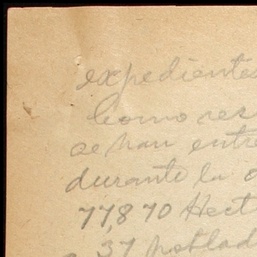 expedientes
Como res
se han entre
durante la
77,870 Hect
37 poblad